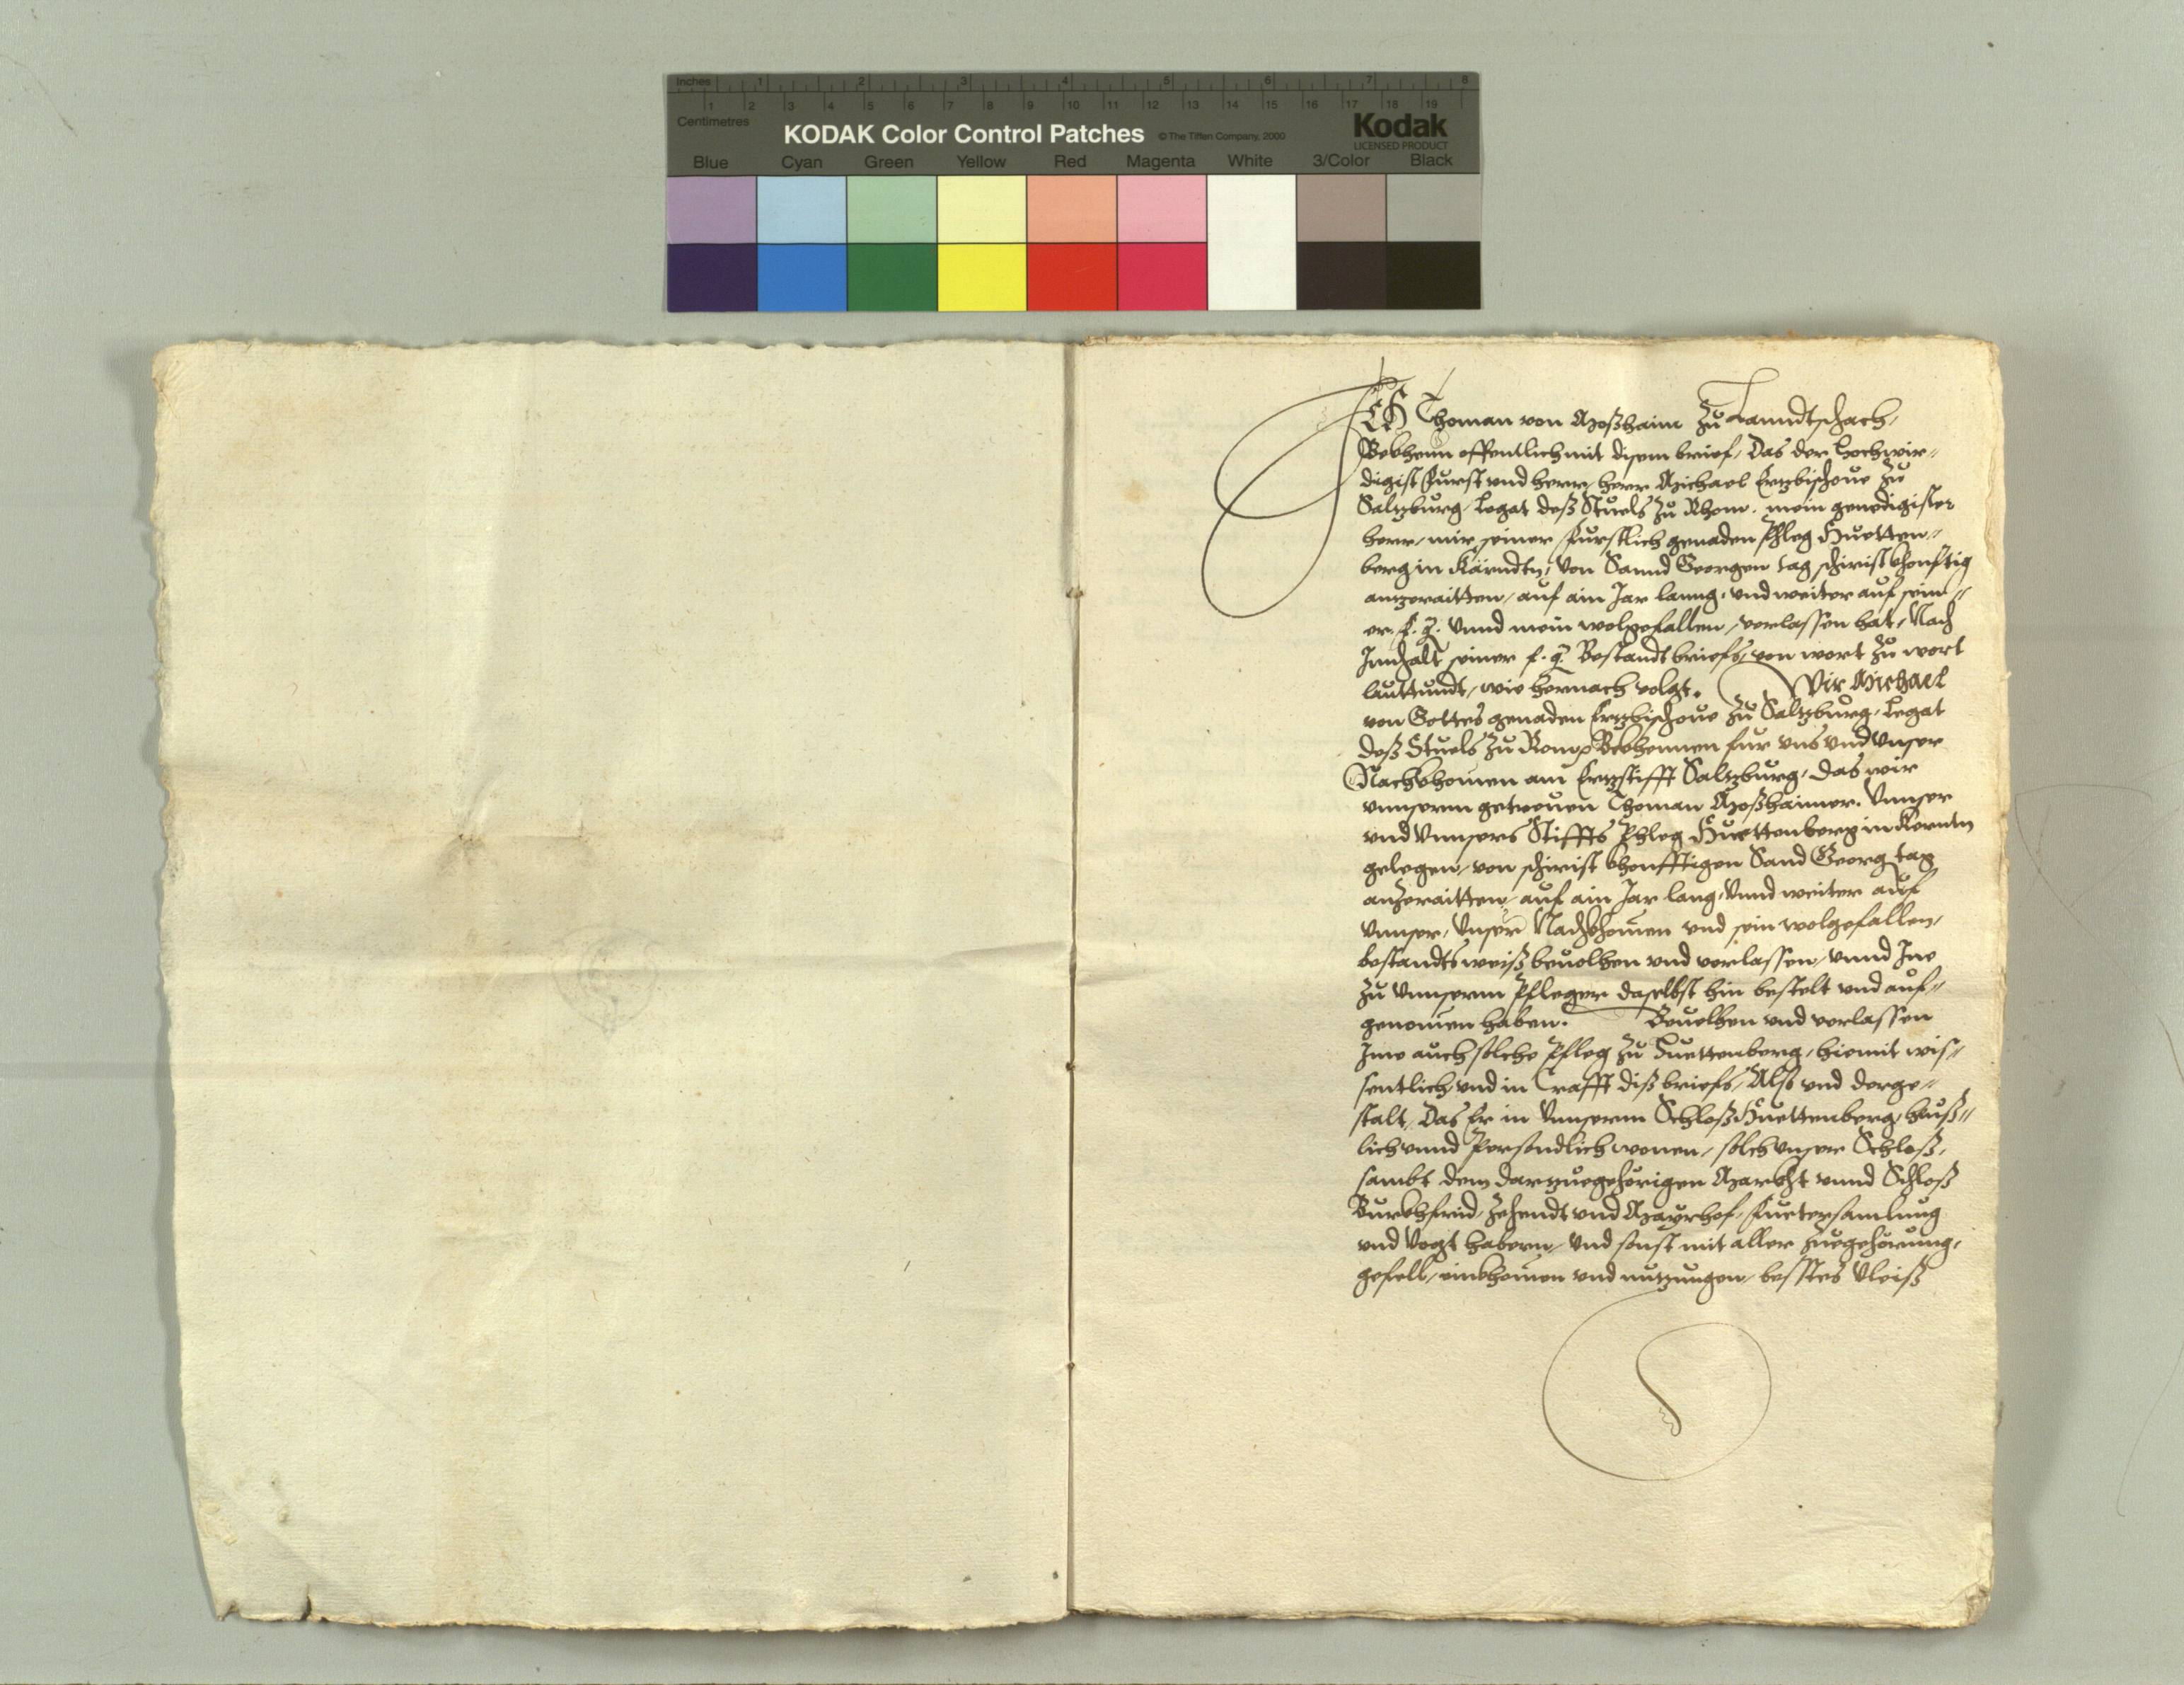 Inches 1 2 3 4 5 6 7 8
1 2 3 4 5 6 7 8 9 10 11 12 13 14 15 16 17 18 19
Centimetres
KODAK Color Control Patches © The Tiffen Company, 2000 Kodak
LICENSED PRODUCT
Blue Cyan Green Yellow Red Magenta White 3/Color Black
ICH Thoman von Moßhaim zu Tanndtschach,
Bekhenn offentlich mit disem brief, Das der Hochwir=
digist Fürst und herr, herr Michael Ertzbischoue zu
Saltzburg, Legat deß Stuels zu Rhom, mein genedigister
herr, mir seiner Fürstlich genaden Phleg Huetten=
berg in Kärndtn, Von Sannd Georgen tag schirist khonftig
antzeraitten, auf ain Jar lanng, und weiter auf sein=
er F. G. Unnd mein wolgefallen, verlassen hat, Nach
Innhalt seiner f. g. Bestandtbriefs, von wort zu wort
lauttundt, wie hernach volgt. Wir Michael
von Gottes genaden Ertzbischoue zu Saltzburg, Legat
deß Stuels zu Rom, Bekhennen fur uns und Unser
Nachkhomen am Ertzstifft Saltzburg, das wir
unnserm getreuen Thoman Moßhaimer, Unnser
und Unnsers Stiffts Phleg Huettenberg in Kerntn
gelegen, von schirist khonfftigen Sand Georg tag
anzeraitten, auf ain Jar lang, Unnd weiter auf
Unnser, Unser Nachkhomen und sein wolgefallen,
bestandtsweiß beuolhen und verlassen, unnd Ine
zu Unnserm Pfleger daselbst hin bestelt und auf=
genomen haben. Beuelhen und verlassen
Ime auch solche Pfleg zu Huettenberg, hiemit wis=
sentlich und in Crafft diß briefs, Also und derge=
stalt, Das Er in Unnserm Schloß Huettenberg, heuß=
lich unnd Persondlich wonen, solch unser Schloß,
sambt dem dartzuegehörigen Markht unnd Schloß
Burkhfrid, Zehendt und Mayrhof, Fuetersamlung
und Vogt habern, Und sonst mit aller zuegehörung,
gefell, einkhomen und nutzungen, besstes Vleiß